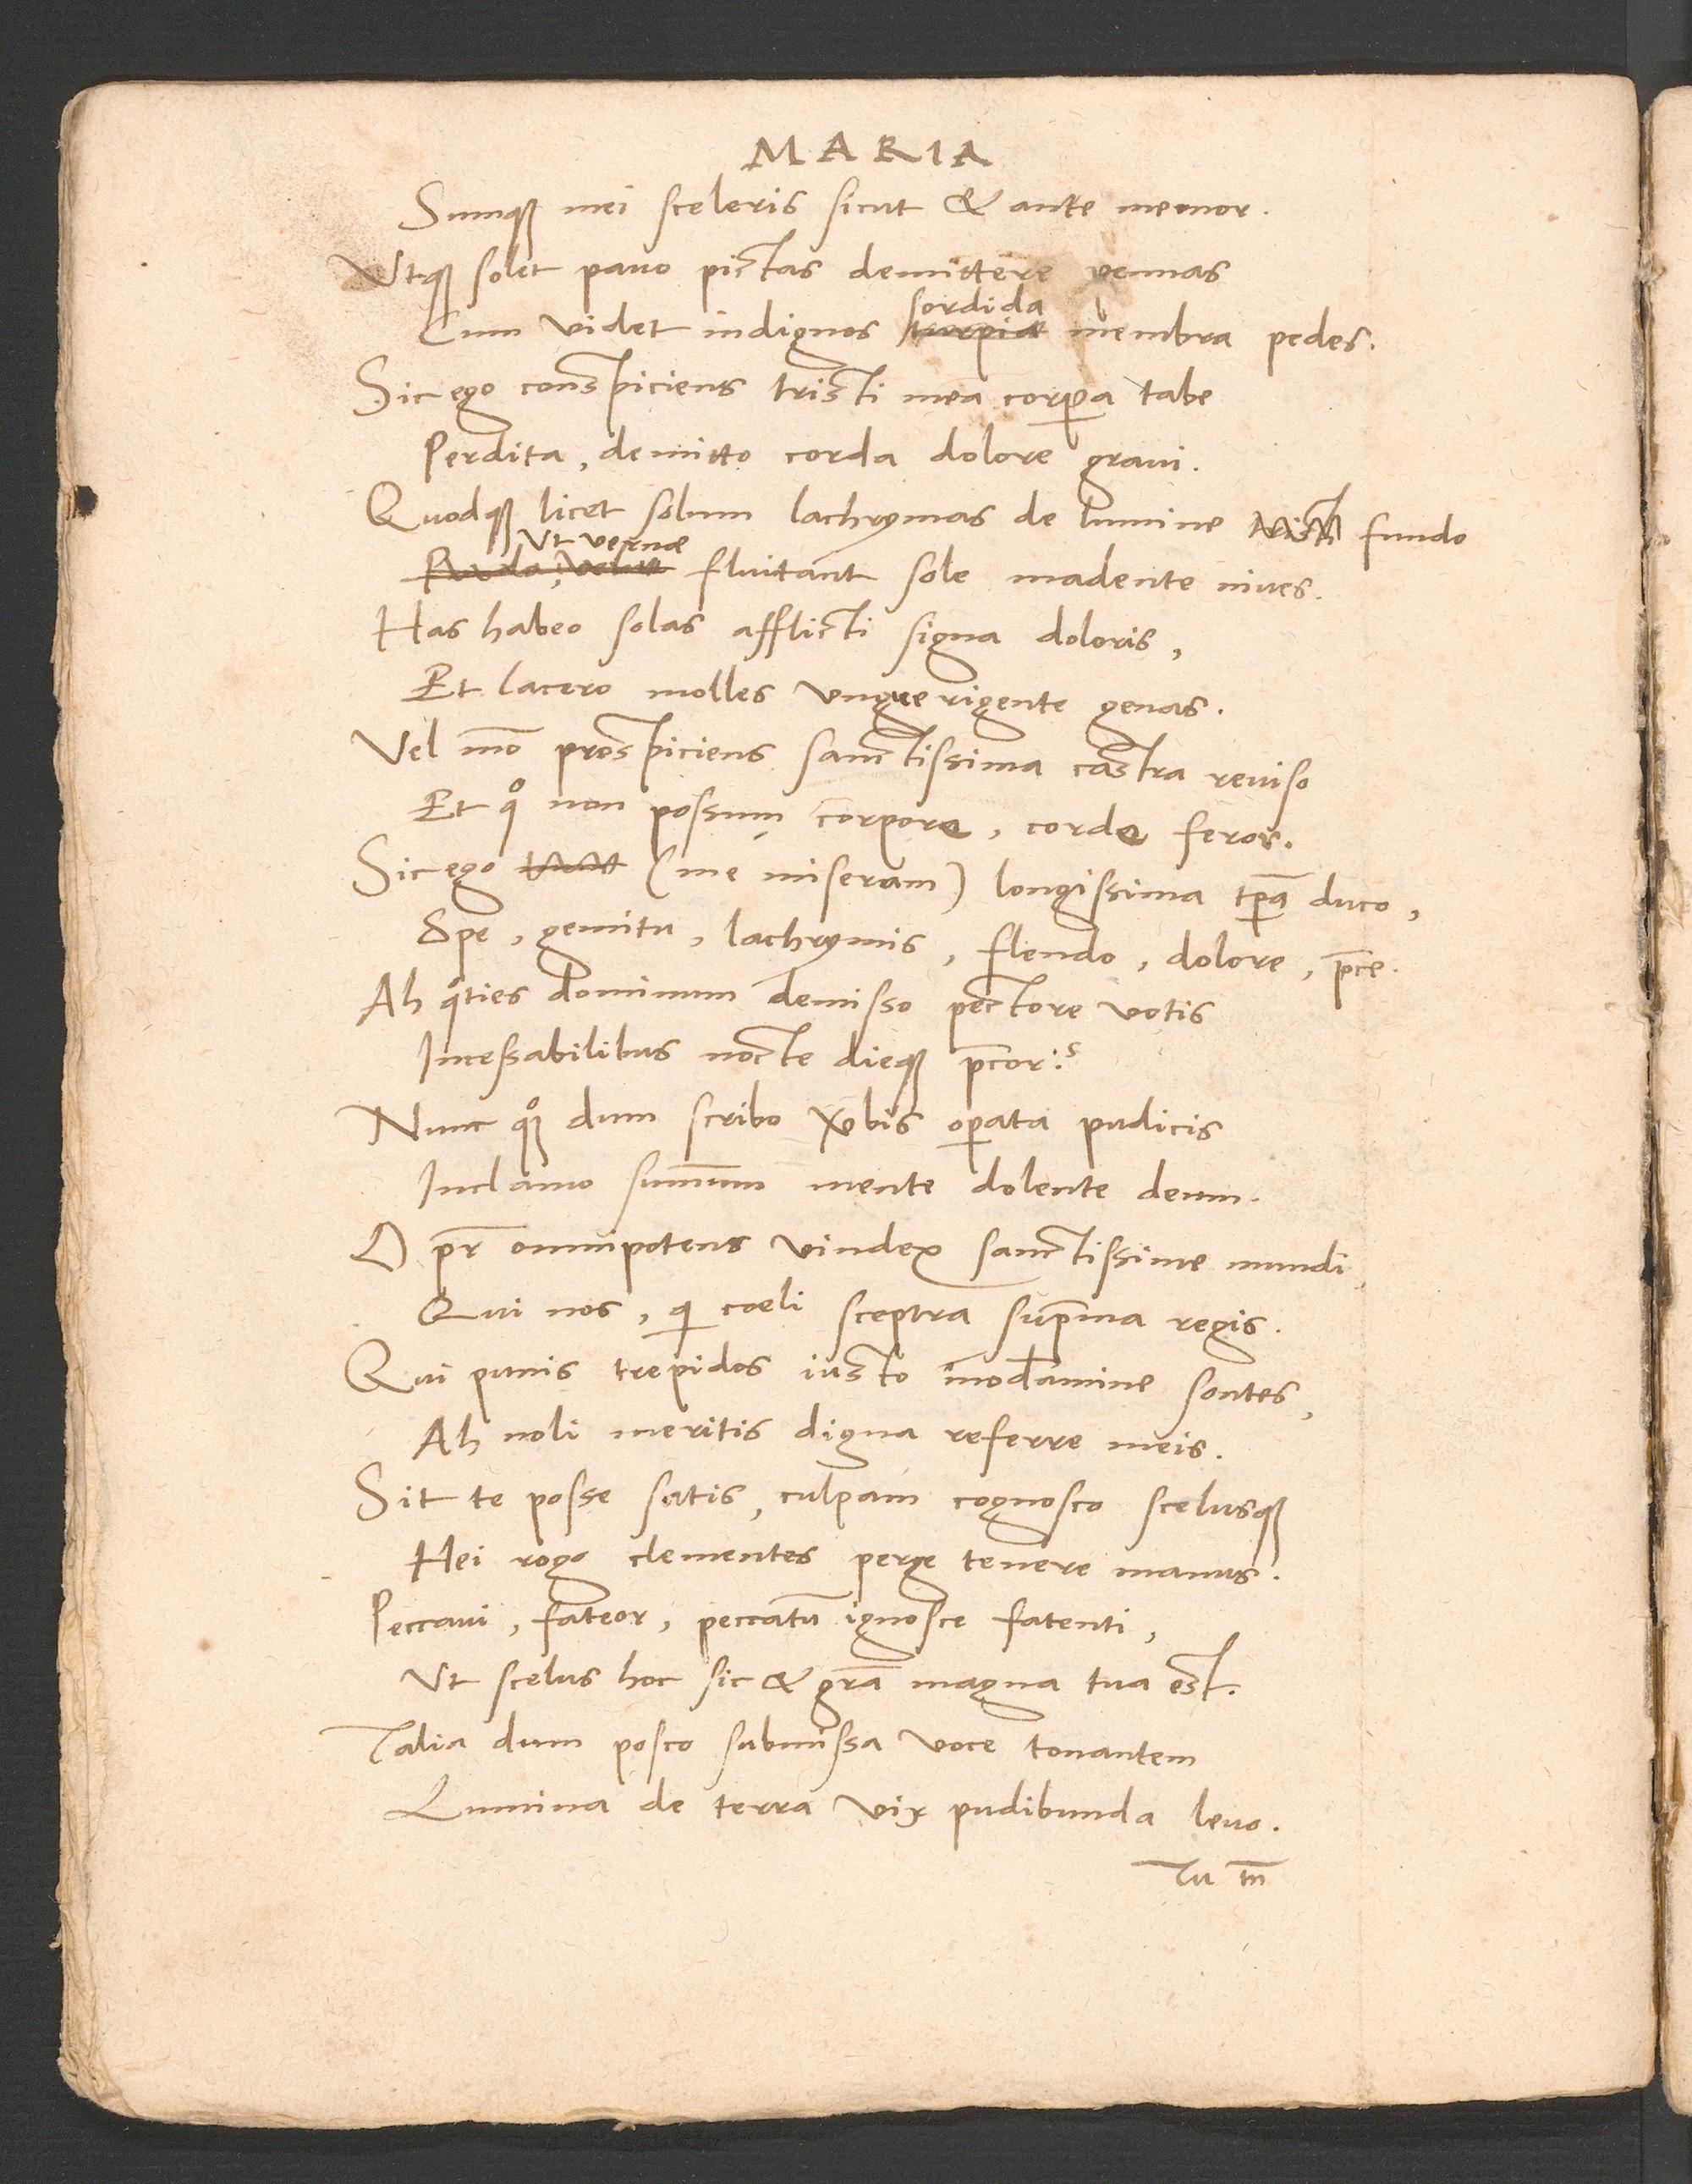 MARIA
Sumqꝫ mei sceleris sicut & ante memor.
Vtqꝫ solet pauo pictas demittere pennas
sordida
Cum videt indignos turpia membra pedes.
Sic ego conspiciens tristi mea corpora tabe
Perdita, demitto corda dolore graui.
Quodqꝫ licet solum lachrymas de lumine fundo
Vt vernæ
fluitant sole madente niues.
Has habeo solas afflicti signa doloris,
Et lacero molles vngue rigente genas.
Vel mō prospiciens sanctissima castra reuiso
Et qͦ non possum corpore, corde feror.
Sic ego (me miseram) longissima tp̄a duco,
Spe, gemitu, lachrymis, flendo, dolore, p̄ce.
Ah qͦties dominum demisso pectore votis
Incessabilibus nocte dieqꝫ p̄cor?
Nunc qͦꝫ dum scribo v̄bis oꝑata pudicis
Inclamo sum̄um mente dolente deum.
O pr̄ omnipotens vindex sanctissime mundi,
Qui nos, qi coeli sceptra sup̄ma regis.
Qui punis trepidos iusto mod̄amine sontes,
Ah noli meritis digna referre meis.
Sit te posse satis, culpam cognosco scelusqꝫ
Hei rogo clementes perge tenere manus.
Peccaui, fateor, peccatū ignosce fatenti,
Vt scelus hoc sic & gr̄a magna tua est.
Talia dum posco submissa voce tonantem
Lumina de terra vix pudibunda leuo.
Tu tn̄